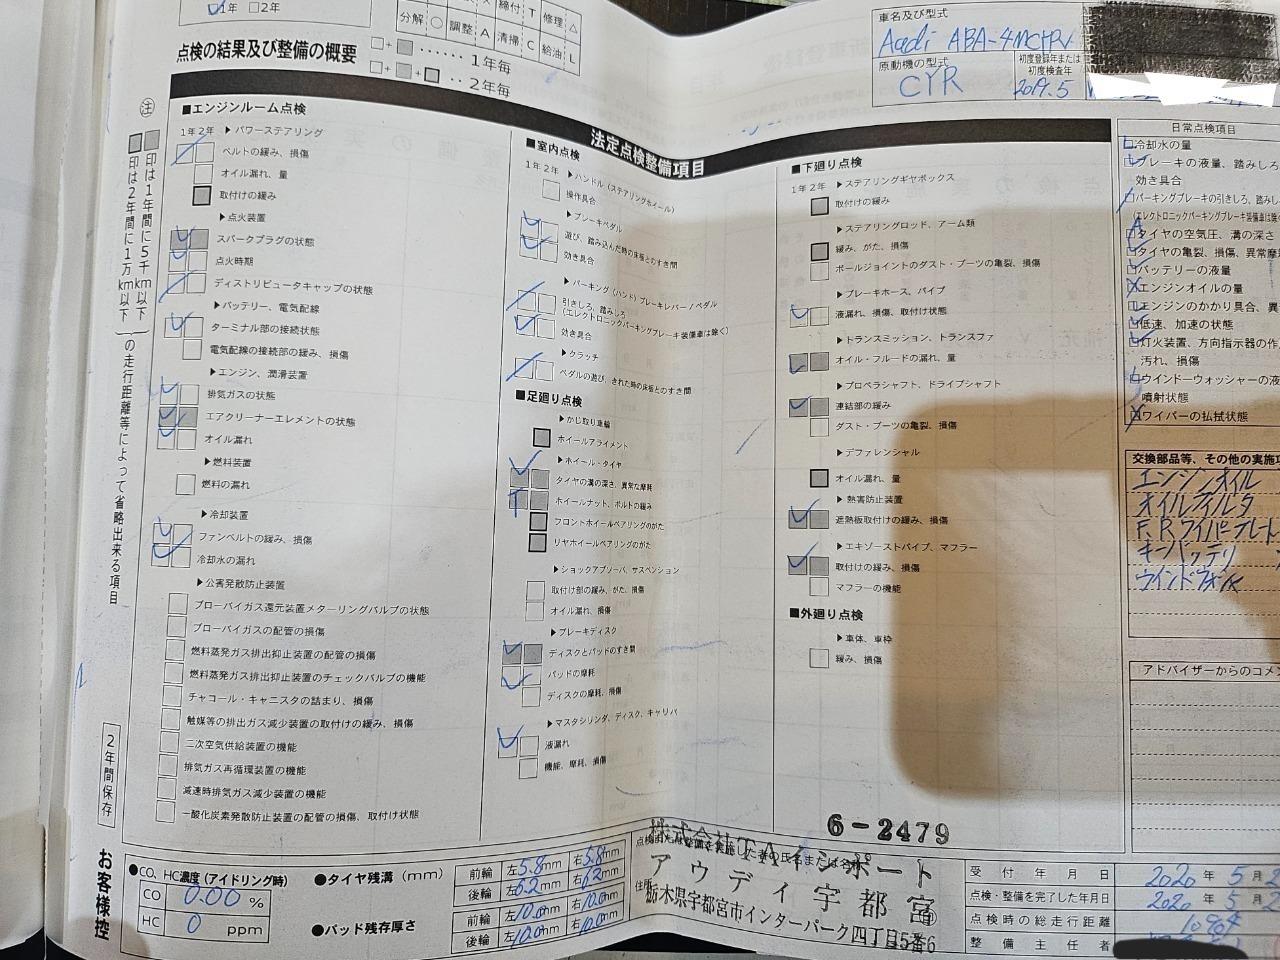 1年 □2年
締付 T 修理 △
分解 ○ 調整 A 清掃 C 給油 L
点検の結果及び整備の概要
□+■‥‥‥1年毎
□+■+■‥2年毎
車名及び型式
Audi ABA-
原動機の型式
CYR
初度登録年または初度検査年
2019.5
法定点検整備項目
㊟
■■印は1年間に5千km以下
■印は2年間に1万km以下
の走行距離等によって省略出来る項目
2年間保存
お客様控
■エンジンルーム点検
1年2年 ▶パワーステアリング
ベルトの緩み、損傷
オイル漏れ、量
取付けの緩み
▶点火装置
スパークプラグの状態
点火時期
ディストリビュータキャップの状態
▶バッテリー、電気配線
ターミナル部の接続状態
電気配線の接続部の緩み、損傷
▶エンジン、潤滑装置
排気ガスの状態
エアクリーナーエレメントの状態
オイル漏れ
▶燃料装置
燃料の漏れ
▶冷却装置
ファンベルトの緩み、損傷
冷却水の漏れ
▶公害発散防止装置
ブローバイガス還元装置メターリングバルブの状態
ブローバイガスの配管の損傷
燃料蒸発ガス排出抑止装置の配管の損傷
燃料蒸発ガス排出抑止装置のチェックバルブの機能
チャコール・キャニスタの詰まり、損傷
触媒等の排出ガス減少装置の取付けの緩み、損傷
二次空気供給装置の機能
排気ガス再循環装置の機能
減速時排気ガス減少装置の機能
一酸化炭素発散防止装置の配管の損傷、取付け状態
■室内点検
1年2年 ▶ハンドル（ステアリングホイール）
操作具合
▶ブレーキペダル
遊び、踏み込んだ時の床板とのすき間
効き具合
▶パーキング（ハンド）ブレーキレバー／ペダル
引きしろ、踏みしろ
（エレクトロニックパーキングブレーキ装備車は除く）
効き具合
▶クラッチ
ペダルの遊び、きれた時の床板とのすき間
■足廻り点検
▶かじ取り車輪
ホイールアライメント
▶ホイール・タイヤ
タイヤの溝の深さ、異常な摩耗
T ホイールナット、ボルトの緩み
フロントホイールベアリングのがた
リヤホイールベアリングのがた
▶ショックアブソーバ、サスペンション
取付け部の緩み、がた、損傷
オイル漏れ、損傷
▶ブレーキディスク
ディスクとパッドのすき間
パッドの摩耗
ディスクの摩耗、損傷
▶マスタシリンダ、ディスク、キャリパ
液漏れ
機能、摩耗、損傷
■下廻り点検
1年2年 ▶ステアリングギヤボックス
取付けの緩み
▶ステアリングロッド、アーム類
緩み、がた、損傷
ボールジョイントのダスト・ブーツの亀裂、損傷
▶ブレーキホース、パイプ
液漏れ、損傷、取付け状態
▶トランスミッション、トランスファ
オイル・フルードの漏れ、量
▶プロペラシャフト、ドライブシャフト
連結部の緩み
ダスト・ブーツの亀裂、損傷
▶デファレンシャル
オイル漏れ、量
▶熱害防止装置
遮熱板取付けの緩み、損傷
▶エキゾーストパイプ、マフラー
取付けの緩み、損傷
マフラーの機能
■外廻り点検
▶車体、車枠
緩み、損傷
日常点検項目
冷却水の量
ブレーキの液量、踏みしろ
効き具合
パーキングブレーキの引きしろ、踏みし
（エレクトロニックパーキングブレーキ装備車は除
タイヤの空気圧、溝の深さ
タイヤの亀裂、損傷、異常摩
バッテリーの液量
エンジンオイルの量
エンジンのかかり具合、異
低速、加速の状態
灯火装置、方向指示器の作
汚れ、損傷
ウインドーウォッシャーの液
噴射状態
ワイパーの払拭状態
交換部品等、その他の実施
エンジンオイル
オイルフィルタ
F.R ワイパーブレード
キーバッテリ
ウインドウォ
アドバイザーからのコメ
6-2479
●CO、HC濃度（アイドリング時）
CO 0.00 %
HC 0 ppm
●タイヤ残溝（mm）
前輪 左5.8mm 右5.8mm
後輪 左6.2mm 右6.2mm
●パッド残存厚さ
前輪 左10.0mm 右10.0mm
後輪 左10.0mm 右10.0mm
株式会社TAインポート
アウディ宇都宮
住所
栃木県宇都宮市インターパーク四丁目5番6
受付年月日 2020年5月2
点検・整備を完了した年月日 2020年5月2
点検時の総走行距離
整備主任者